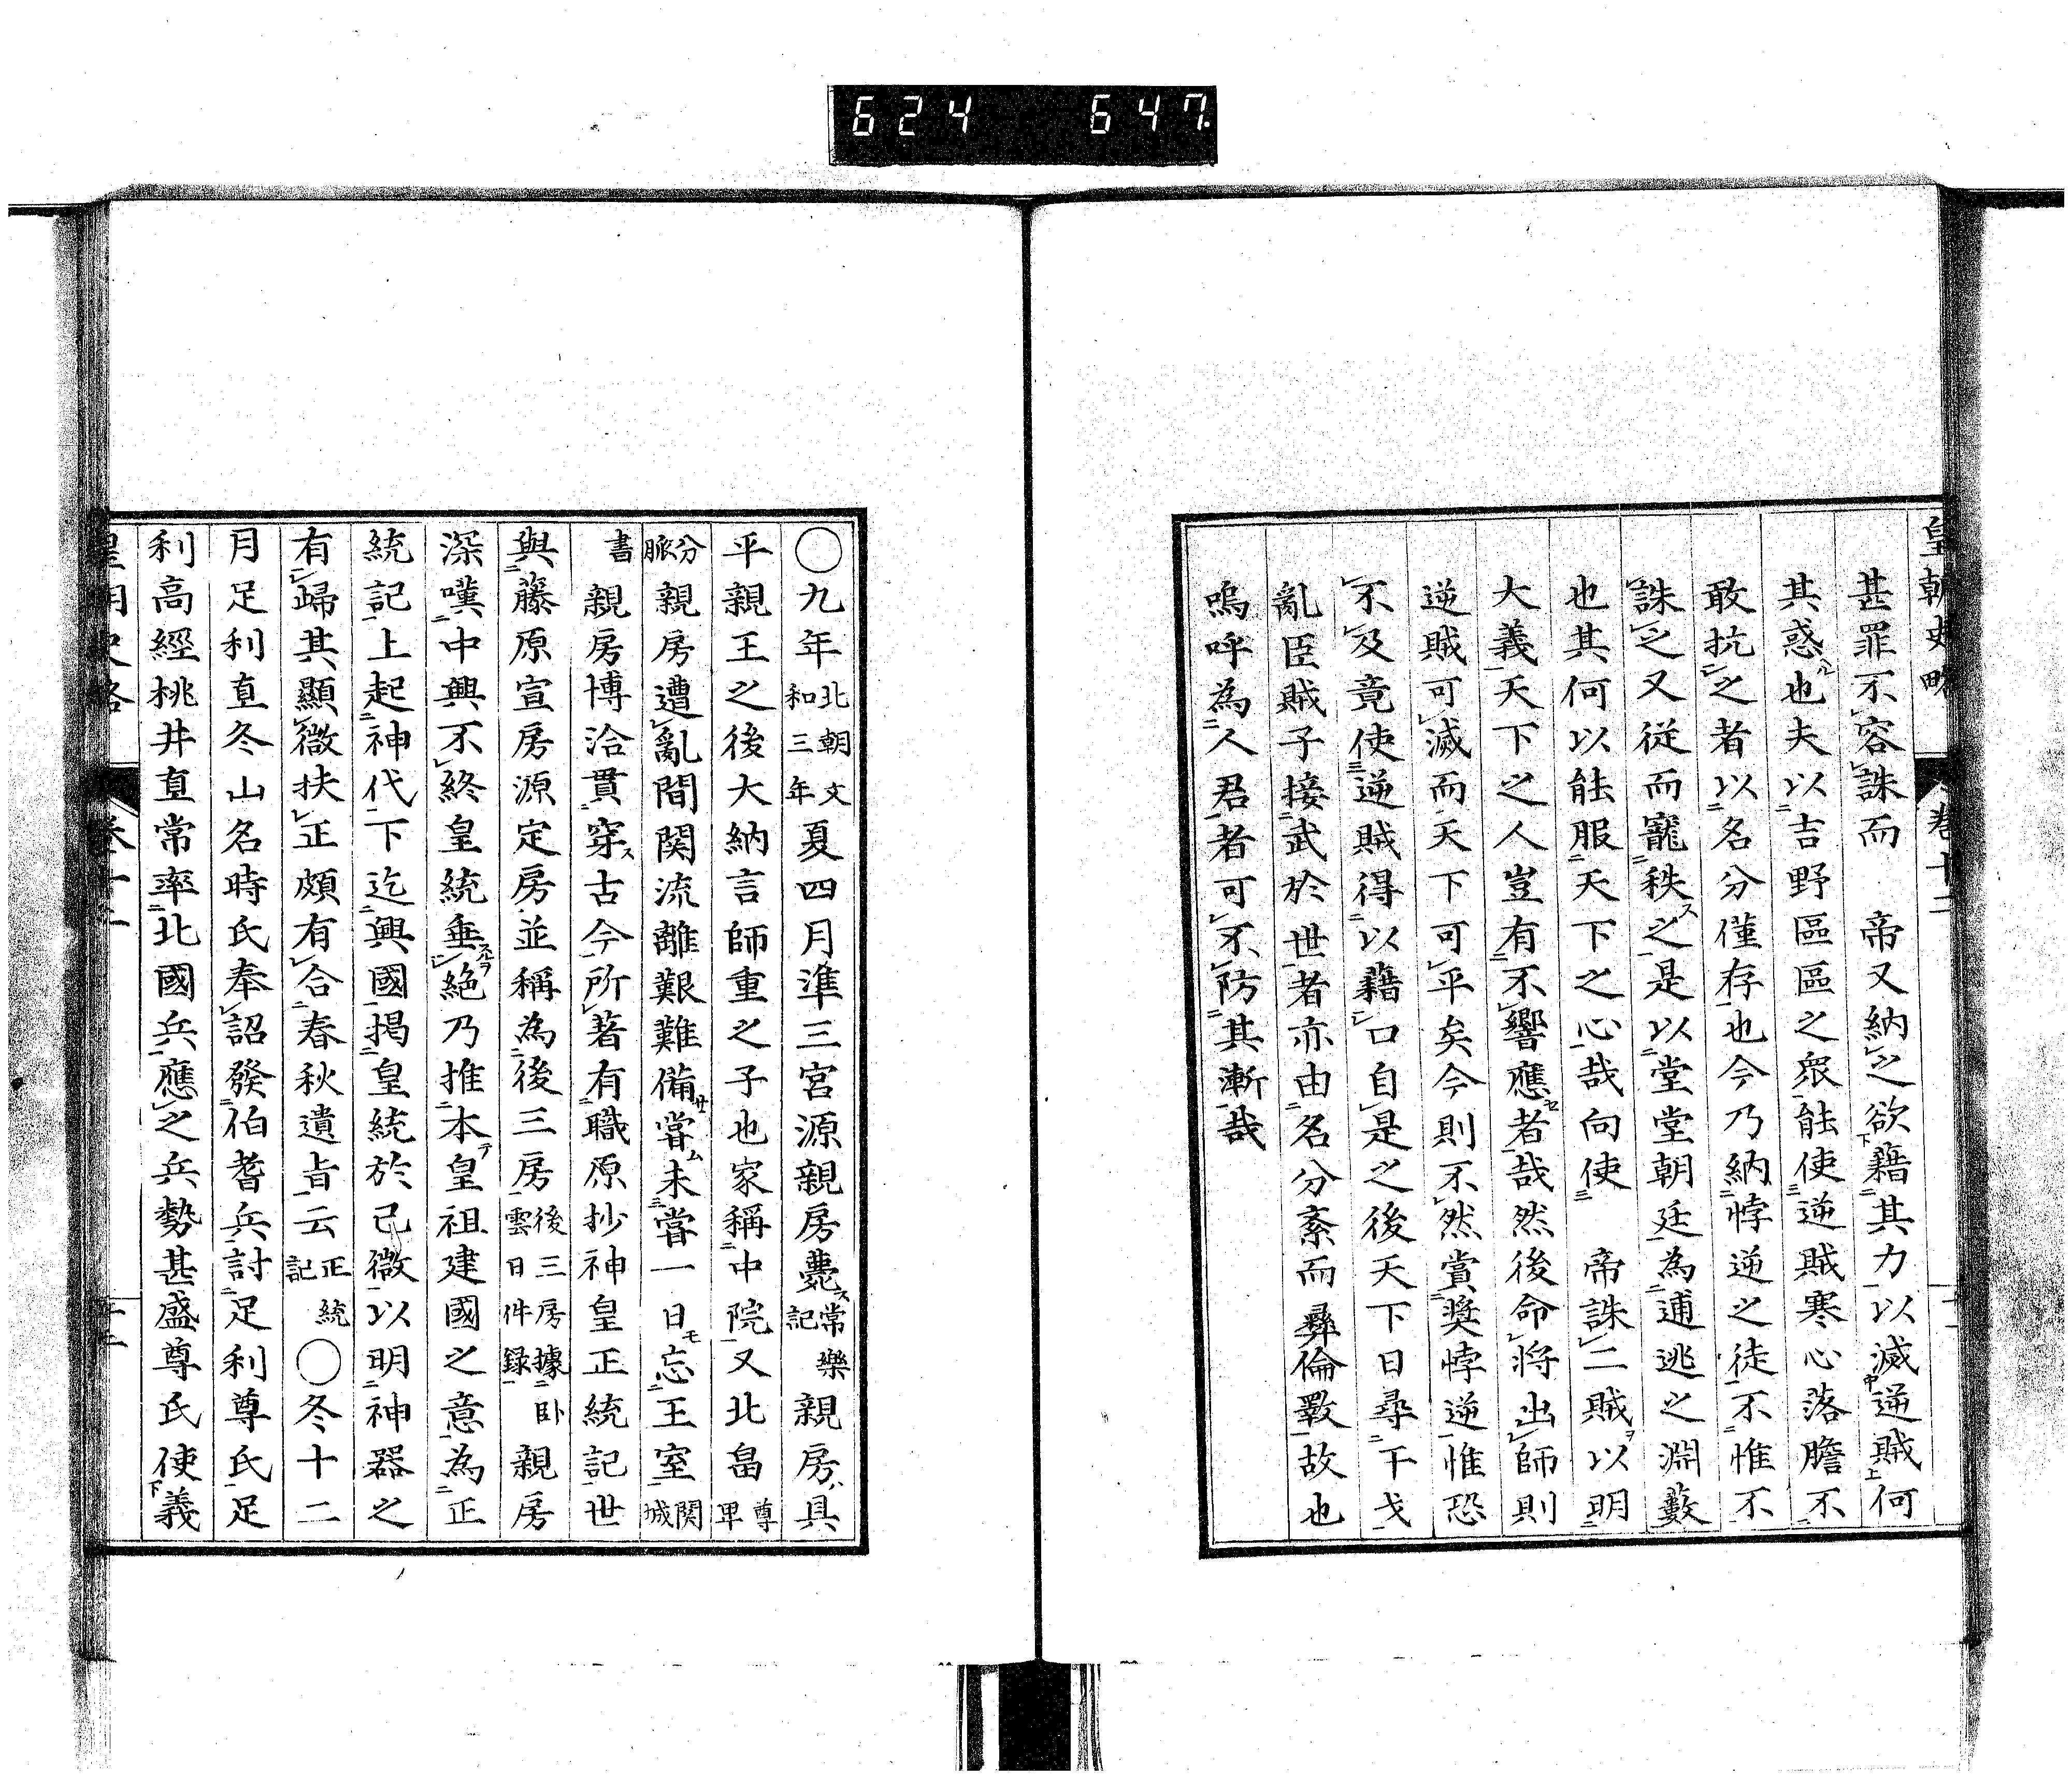 624 647
皇朝史略 卷十二
甚罪不容誅而 帝又納之欲藉其力以滅逆賊何
其惑也夫以吉野區區之衆能使逆賊寒心落膽不
敢抗之者以名分僅存也今乃納悖逆之徒不惟不
誅之又從而寵秩之是以堂堂朝廷為逋逃之淵藪
也其何以能服天下之心哉向使 帝誅二賊以明
大義天下之人豈有不響應者哉然後命將出師則
逆賊可滅而天下可平矣今則不然賞奬悖逆惟恐
不及竟使逆賊得以藉口自是之後天下日尋干戈
亂臣賊子接武於世者亦由名分紊而彝倫斁故也
嗚呼為人君者可不防其漸哉
〇九年北朝文和三年夏四月準三宮源親房薨常樂記親房具
平親王之後大納言師重之子也家稱中院又北畠尊卑
分脈親房遭亂間関流離艱難備嘗未嘗一日忘王室関城
書親房博洽貫穿古今所著有職原抄神皇正統記世
與藤原宣房源定房並稱為後三房後三房據臥雲日件録親房
深嘆中興不終皇統垂絕乃推本皇祖建國之意為正
統記上起神代下迄興國揭皇統於已微以明神器之
有歸其顯微扶正頗有合春秋遺旨云正統記〇冬十二
月足利直冬山名時氏奉詔發伯耆兵討足利尊氏足
利高經桃井直常率北國兵應之兵勢甚盛尊氏使義
皇朝史略 卷十二